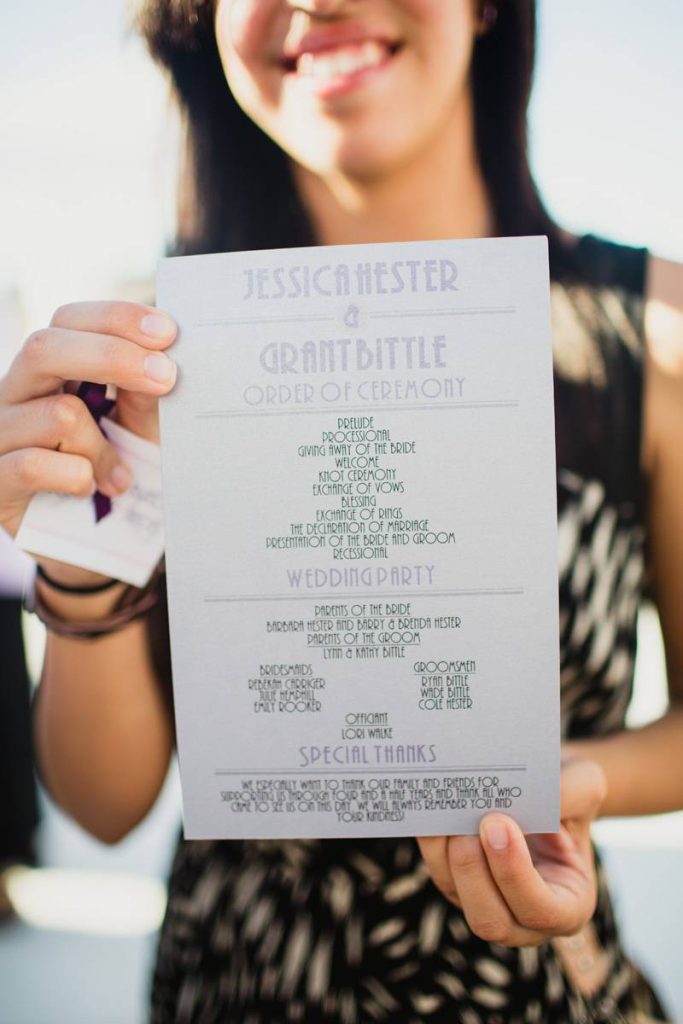 JESSICA HESTER
&
GRANT BITTLE
ORDER OF CEREMONY
PRELUDE
PROCESSIONAL
GIVING AWAY OF THE BRIDE
WELCOME
KNOT CEREMONY
EXCHANGE OF VOWS
BLESSING
EXCHANGE OF RINGS
THE DECLARATION OF MARRIAGE
PRESENTATION OF THE BRIDE AND GROOM
RECESSIONAL
WEDDING PARTY
PARENTS OF THE BRIDE
BARBARA HESTER AND BARRY & BRENDA HESTER
PARENTS OF THE GROOM
LYNN & KATHY BITTLE
BRIDESMAIDS
REBEKAH CARRIGER
JULIE HEMPHILL
EMILY ROOKER
GROOMSMEN
RYAN BITTLE
WADE BITTLE
COLE HESTER
OFFICIANT
LORI WALKE
SPECIAL THANKS
WE ESPECIALLY WANT TO THANK OUR FAMILY AND FRIENDS FOR
SUPPORTING US THROUGH FOUR AND A HALF YEARS AND THANK ALL WHO
CAME TO SEE US ON THIS DAY. WE WILL ALWAYS REMEMBER YOU AND
YOUR KINDNESS!